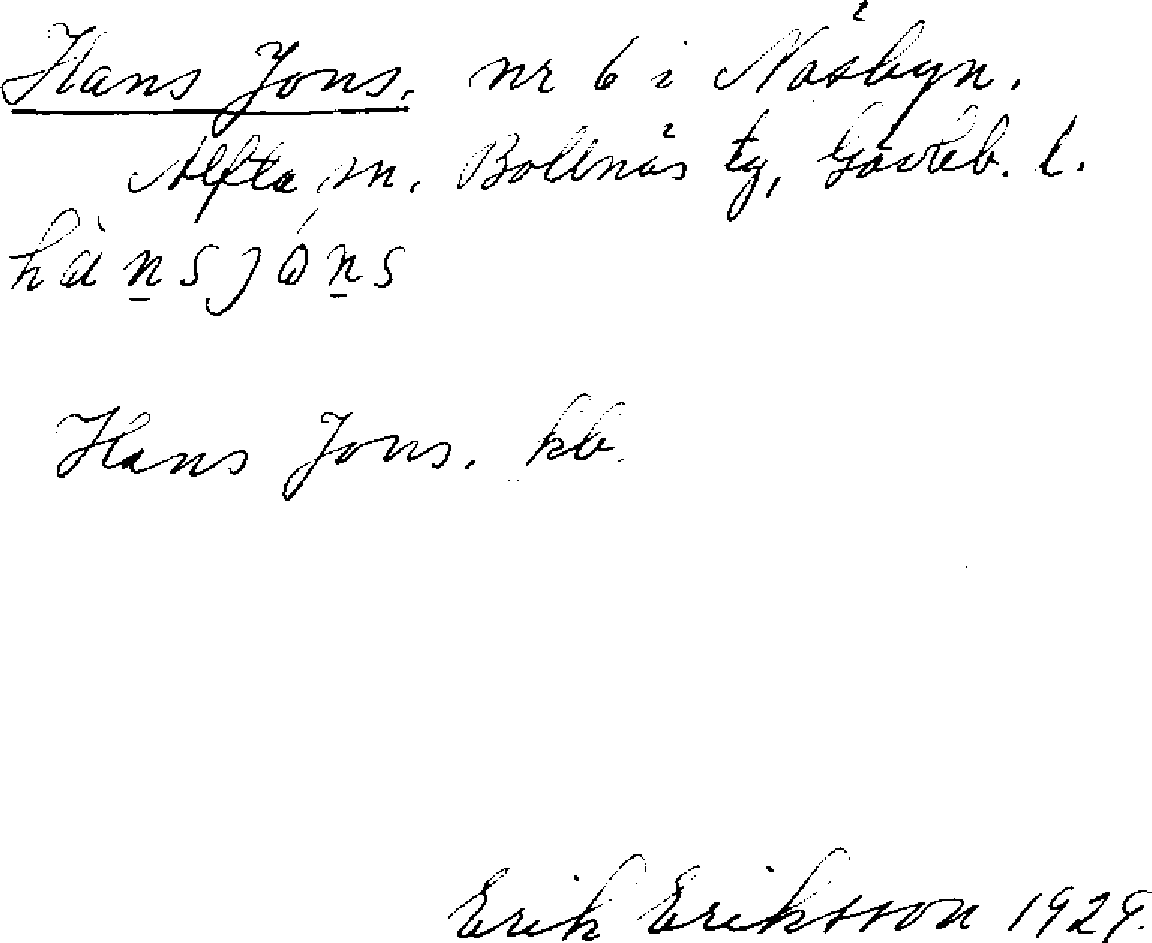 Hans Jons. nr 6 i Näsbyn.
Alfta sn. Bollnäs tg, Gävleb. l.
hànsjóns
Hans Jons. kb.
Erik Eriksson 1929.